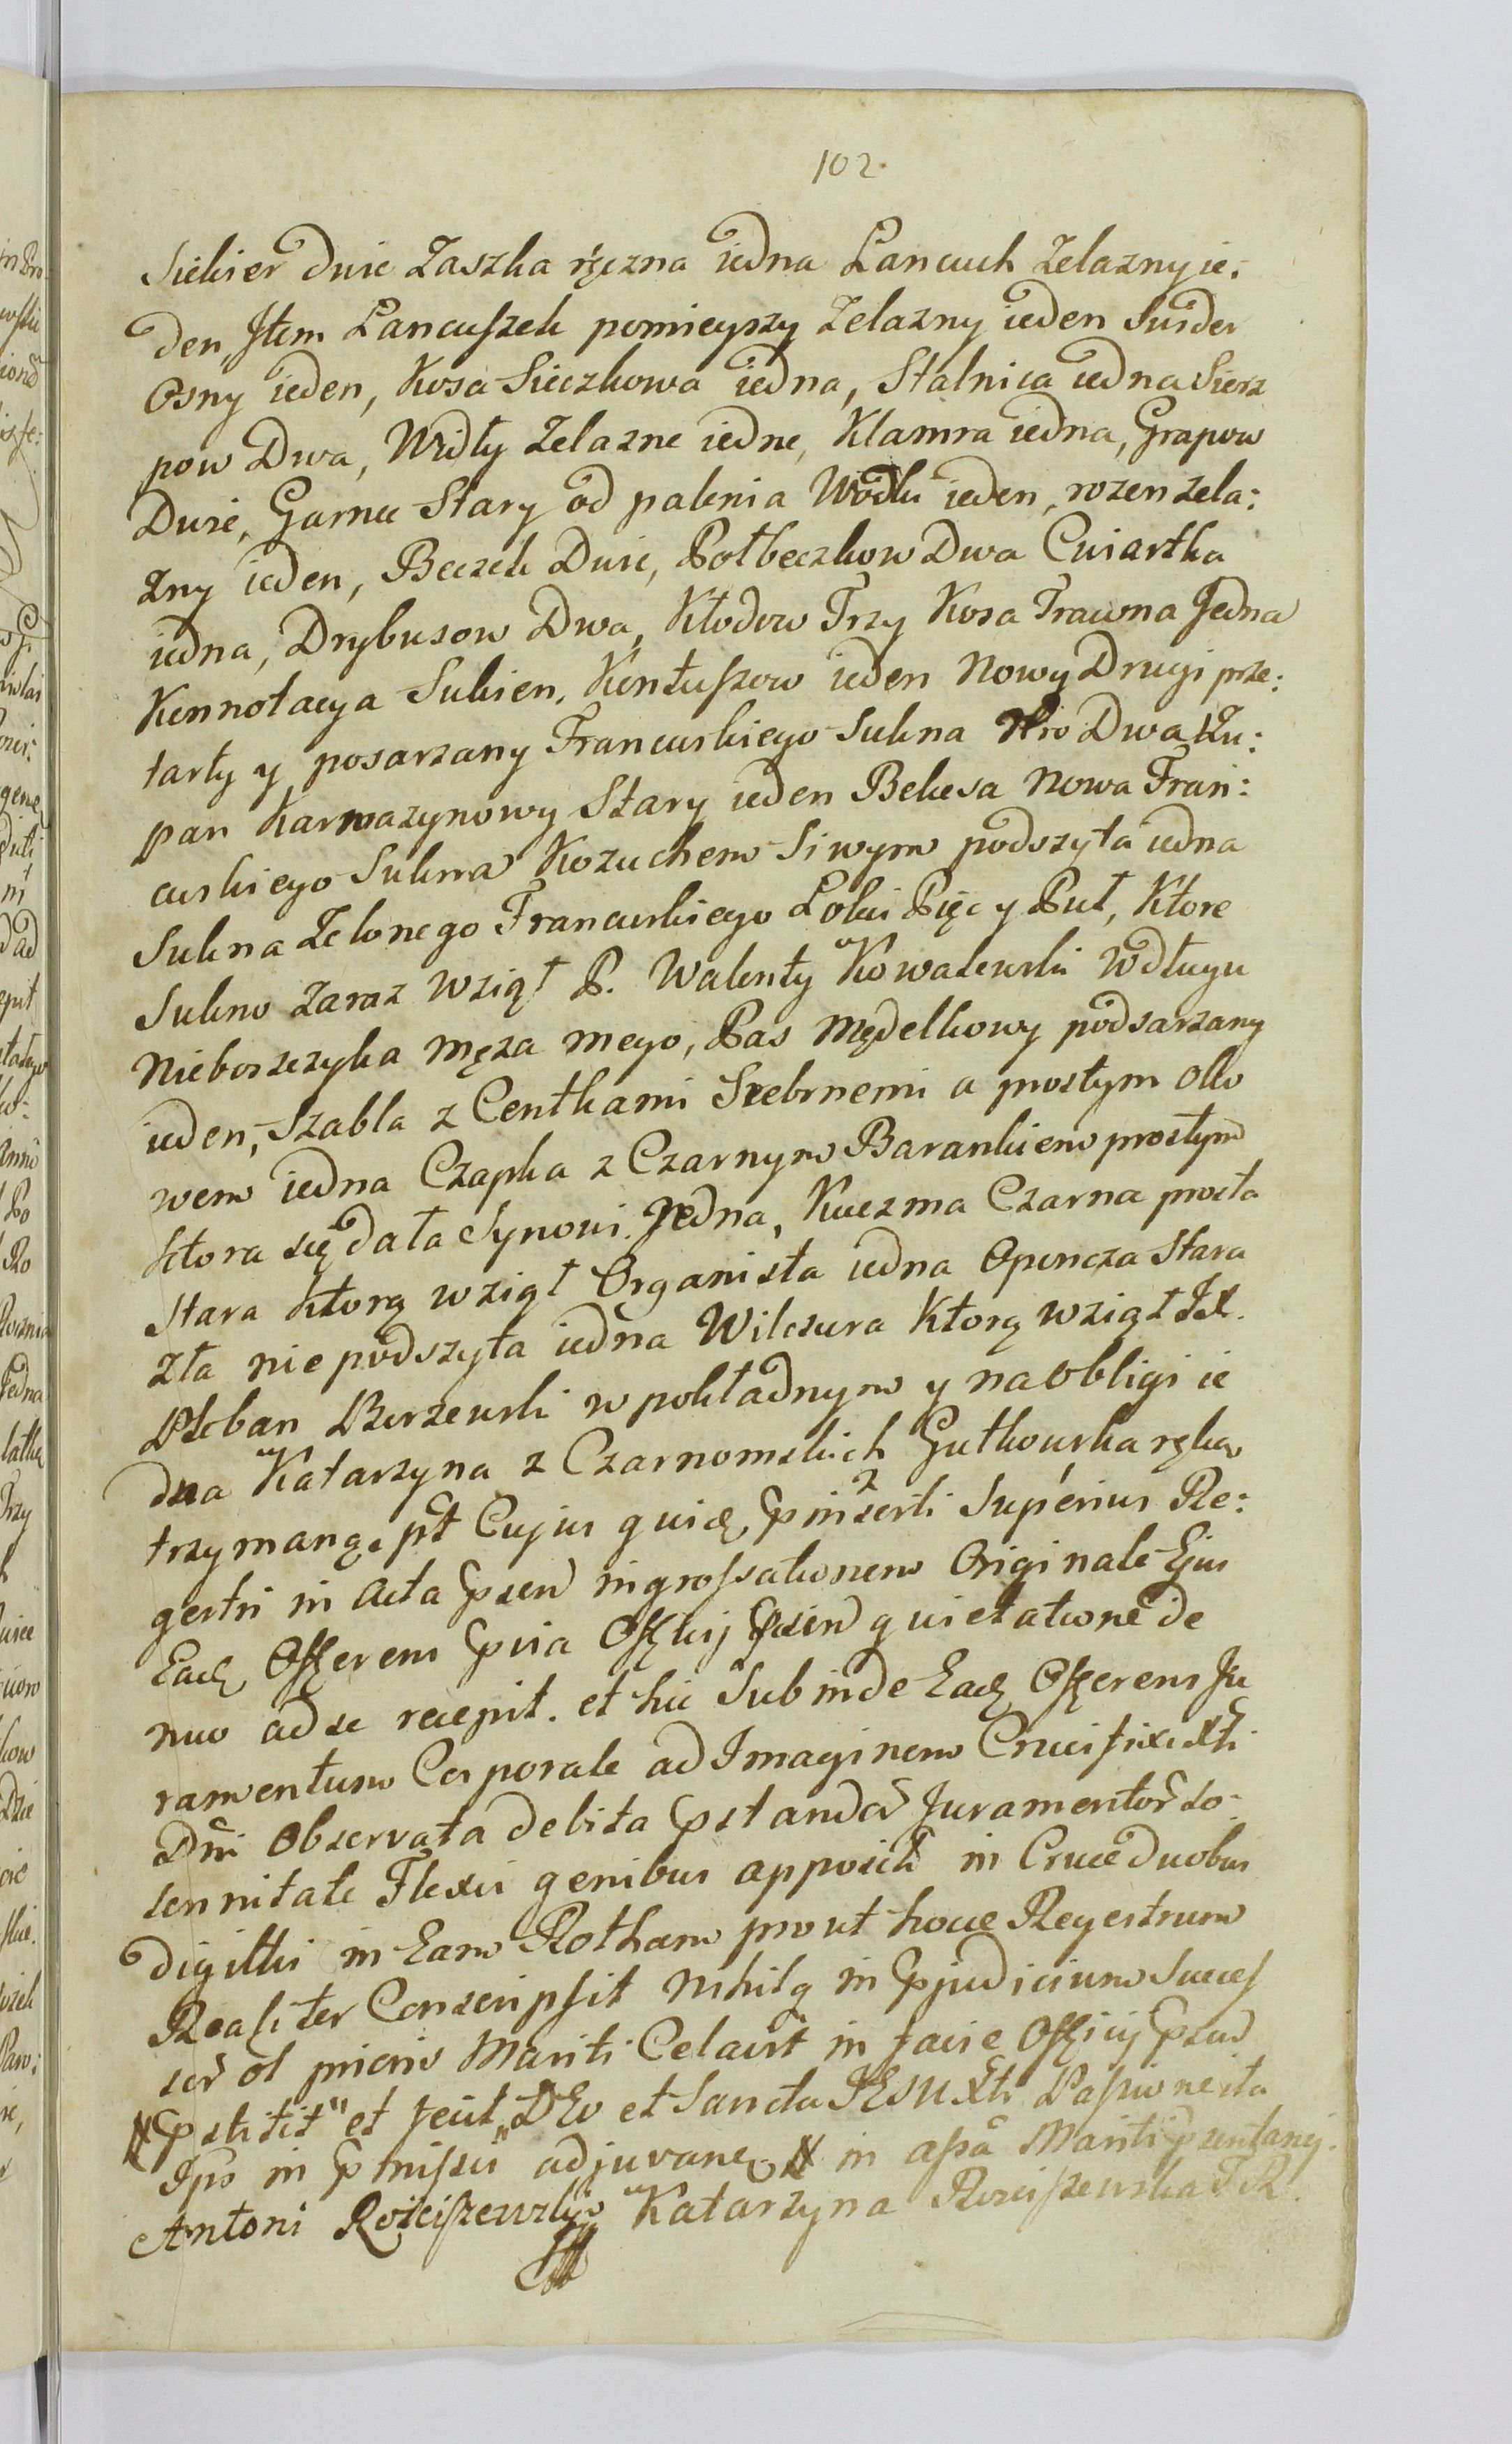 102.
Siekier dwie Zaszka ręczna iedna Łancuch Zelazny ie:
den, Jtem Łancuszek pomieyszy Zelazny ieden Swider
Osny ieden, Kosa Sieczkowa iedna, Stalnica iedna Sierz
pow Dwa, Widły Zelazne iedne, Klamra iedna, Grapow
Dwie, Garniec Stary od palenia Wodki ieden, rozen zela:
zny ieden, Beczek Dwie, Połbeczkow Dwa Cwiartka
iedna, Drybusow Dwa, Kłodow Trzy Kosa Trawna Jedna
Konnotacya Sukien, Kontuszow ieden Nowy Drugi prze:
tarty y posarzany Francuskiego Sukna Nro Dwa Zu:
pan Karmazynowy Stary ieden Bekesa Nowa Fran:
cuskiego Sukna Kozuchem Siwym podszyta iedna
Sukna Zelonego Francuskiego Łokci Pięc y Puł, Ktore
Sukno Zaraz Wziął P. Walenty Kowalewski Wdługu
Nieboszczyka Męza mego, Pas Mędelkowy podsarzany
ieden, Szabla z Centkami Srebrnemi a prostym oko
wem iedna Czapka z Czarnym Barankiem prostym
ktora się dała Synowi. Jedna, Kuczma Czarna prosta
Stara ktorą wziął Organista iedna Oponcza Stara
Zła nie podszyta iedna Wilczura Ktorą wziął JX.
Pleban Borzewski w pokładnym y na obligi ie
dna Katarzyna z Czarnomskich Gutkowska ręką
trzymaną. pt Cujus quid pinserti Superius Re:
gestri in Acta psen ingrossationem Originale Ejus
Ead Offerens pvia Offkij psen quietatione de
nuo ad se recepit. et hic Subinde Ead Offerens Ju
ramentum Corporale ad Imaginem Crucifixi Xti
Dni Observata debita pstandor Juramentor so:
lennitate Flexis genibus appositis in Cruce duobus
digitis in Eam Rotham prout hocce Regestrum
Realiter Conscripsit nihilq in pjudicium Succes
sor ol prioris Mariti Celavit in facie Officij psen
pstitit et fecit DEo et Sancta JESU Xti Passione ita
Jpso in pmissis adjuvane in assa Mariti psentanej.
Antoni Rosciszewsky Katarzyna Rosciszewska